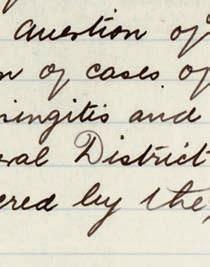 Question of
n of cases of
ningitis and
eral District
ered by the,